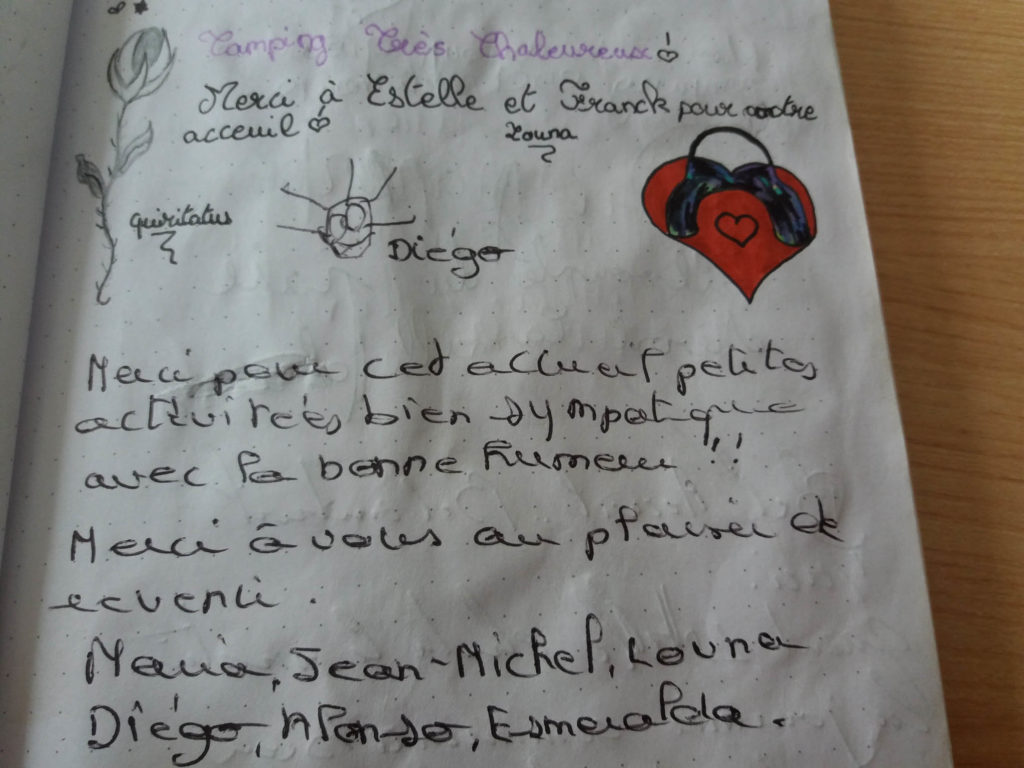 Camping Très Chaleureux!
Merci à Estelle et Franck pour votre
acceuil!
Louna
Diégo
Merci pour cet accueil petites
activitées bien sympatique
avec la bonne humeur !!
Merci à vous au plaisir de
revenir.
Maria, Jean-Michel, Louna
Diégo, Alonso, Esmeralda.